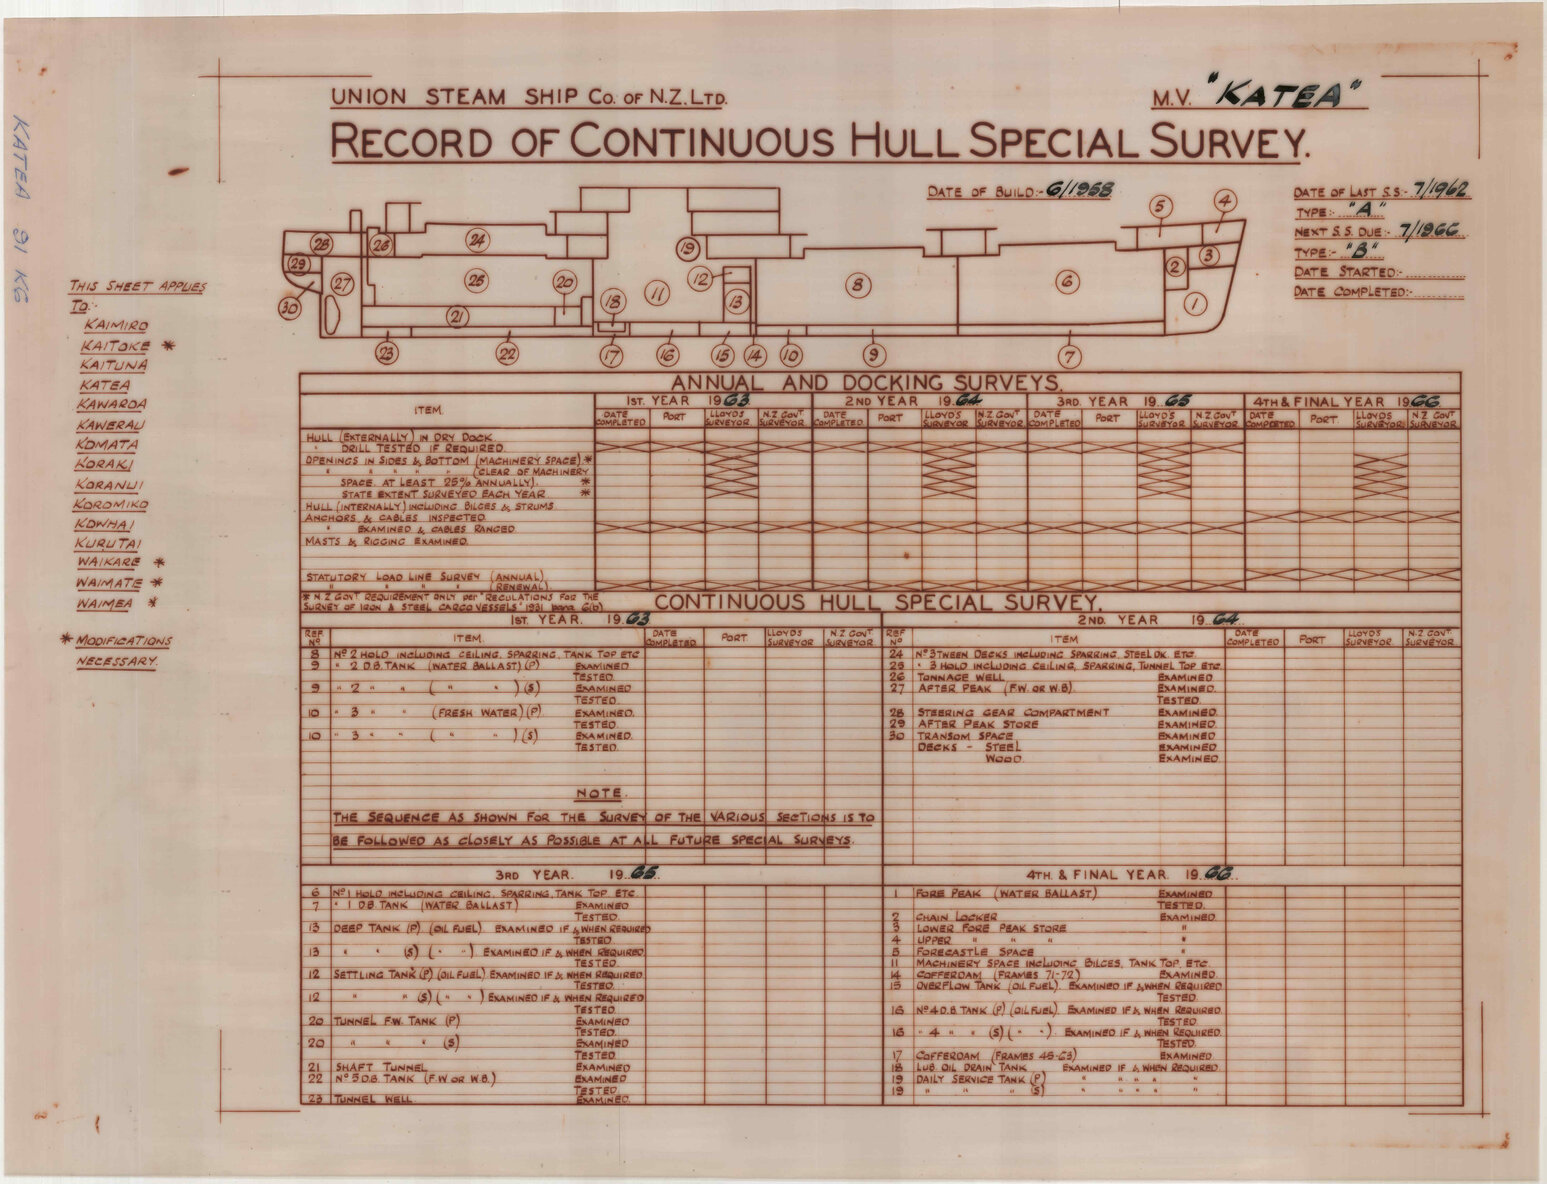 UNION STEAM SHIP CO. OF N.Z. LTD.
M.V. "KATEA"
RECORD OF CONTINUOUS HULL SPECIAL SURVEY.
KATEA 91 KG
DATE OF BUILD:- 6/1958
DATE OF LAST S.S:- 7/1962
TYPE:- "A"
NEXT S.S. DUE:- 7/1966
TYPE:- "B"
DATE STARTED:-
DATE COMPLETED:-
THIS SHEET APPLIES
TO:-
KAIMIRO
KAITOKE *
KAITUNA
KATEA
KAWAROA
KAWERAU
KOMATA
KORAKI
KORANUI
KOROMIKO
KOWHAI
KURUTAI
WAIKARE *
WAIMATE *
WAIMEA *
* MODIFICATIONS
NECESSARY.
28 26 24 19 5 4
29 27 25 20 12 8 6 2 3
30 21 18 11 13 1
23 22 17 16 15 14 10 9 7
ANNUAL AND DOCKING SURVEYS.
ITEM.
1ST. YEAR 1963
2ND YEAR 1964
3RD. YEAR 1965
4TH & FINAL YEAR 1966
DATE COMPLETED PORT LLOYD'S SURVEYOR N.Z. GOVT SURVEYOR DATE COMPLETED PORT LLOYD'S SURVEYOR N.Z. GOVT SURVEYOR DATE COMPLETED PORT LLOYD'S SURVEYOR N.Z. GOVT SURVEYOR DATE COMPLETED PORT. LLOYD'S SURVEYOR N.Z. GOVT SURVEYOR
HULL (EXTERNALLY) IN DRY DOCK
" DRILL TESTED IF REQUIRED.
OPENINGS IN SIDES & BOTTOM (MACHINERY SPACE) *
" " " " " (CLEAR OF MACHINERY
SPACE. AT LEAST 25% ANNUALLY). *
STATE EXTENT SURVEYED EACH YEAR *
HULL (INTERNALLY) INCLUDING BILGES & STRUMS.
ANCHORS & CABLES INSPECTED
" EXAMINED & CABLES RANGED
MASTS & RIGGING EXAMINED.
STATUTORY LOAD LINE SURVEY (ANNUAL)
" " " " (RENEWAL)
* N.Z GOVT. REQUIREMENT ONLY per "REGULATIONS FOR THE
SURVEY OF IRON & STEEL CARGO VESSELS" 1931 para 6(b)
CONTINUOUS HULL SPECIAL SURVEY.
1ST. YEAR. 1963
REF Nº ITEM. DATE COMPLETED. PORT LLOYD'S SURVEYOR N.Z. GOVT SURVEYOR.
8 Nº 2 HOLD INCLUDING CEILING, SPARRING, TANK TOP ETC
9 " 2 D.B. TANK (WATER BALLAST) (P) EXAMINED
TESTED.
9 " 2 " " ( " " ) (S) EXAMINED
TESTED.
10 " 3 " " (FRESH WATER) (P) EXAMINED.
TESTED.
10 " 3 " " ( " " ) (S) EXAMINED.
TESTED.
NOTE.
THE SEQUENCE AS SHOWN FOR THE SURVEY OF THE VARIOUS SECTIONS IS TO
BE FOLLOWED AS CLOSELY AS POSSIBLE AT ALL FUTURE SPECIAL SURVEYS.
2ND. YEAR 1964
REF Nº ITEM DATE COMPLETED PORT LLOYD'S SURVEYOR N.Z. GOVT SURVEYOR
24 Nº 3 TWEEN DECKS INCLUDING SPARRING, STEEL DK. ETC.
25 " 3 HOLD INCLUDING CEILING, SPARRING, TUNNEL TOP ETC.
26 TONNAGE WELL EXAMINED
27 AFTER PEAK (F.W. OR W.B). EXAMINED.
TESTED.
28 STEERING GEAR COMPARTMENT EXAMINED.
29 AFTER PEAK STORE EXAMINED.
30 TRANSOM SPACE EXAMINED.
DECKS - STEEL EXAMINED
WOOD EXAMINED
3RD YEAR. 1965
6 Nº 1 HOLD INCLUDING CEILING, SPARRING, TANK TOP. ETC.
7 " 1 D.B. TANK (WATER BALLAST) EXAMINED
TESTED.
13 DEEP TANK (P) (OIL FUEL). EXAMINED IF & WHEN REQUIRED
TESTED.
13 " " (S) ( " " ) EXAMINED IF & WHEN REQUIRED.
TESTED.
12 SETTLING TANK (P) (OIL FUEL) EXAMINED IF & WHEN REQUIRED.
TESTED.
12 " " (S) ( " " ) EXAMINED IF & WHEN REQUIRED
TESTED.
20 TUNNEL F.W. TANK (P) EXAMINED
TESTED.
20 " " " (S) EXAMINED
TESTED.
21 SHAFT TUNNEL EXAMINED
22 Nº 5 D.B. TANK (F.W OR W.B.) EXAMINED
TESTED.
23 TUNNEL WELL EXAMINED.
4TH. & FINAL YEAR. 1966
1 FORE PEAK (WATER BALLAST) EXAMINED
TESTED.
2 CHAIN LOCKER EXAMINED
3 LOWER FORE PEAK STORE "
4 UPPER " " " "
5 FORECASTLE SPACE "
11 MACHINERY SPACE INCLUDING BILGES, TANK TOP, ETC.
14 COFFERDAM (FRAMES 71-72) EXAMINED.
15 OVERFLOW TANK (OIL FUEL). EXAMINED IF & WHEN REQUIRED
TESTED.
16 Nº 4 D.B. TANK (P) (OIL FUEL). EXAMINED IF & WHEN REQUIRED.
TESTED
16 " 4 " " (S) ( " " ). EXAMINED IF & WHEN REQUIRED.
TESTED.
17 COFFERDAM EXAMINED.
18 LUB. OIL DRAIN TANK EXAMINED IF & WHEN REQUIRED.
19 DAILY SERVICE TANK (P) " " " " "
19 " " " (S) " " " " "